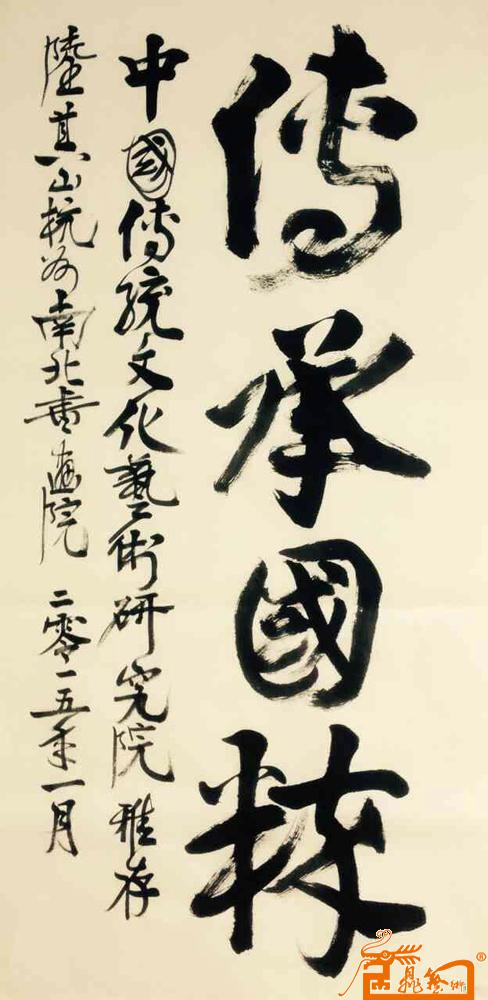 傳承國粹
中國傳統文化藝術研究院雅存
陸其山杭州南北書畫院 二零一五年一月